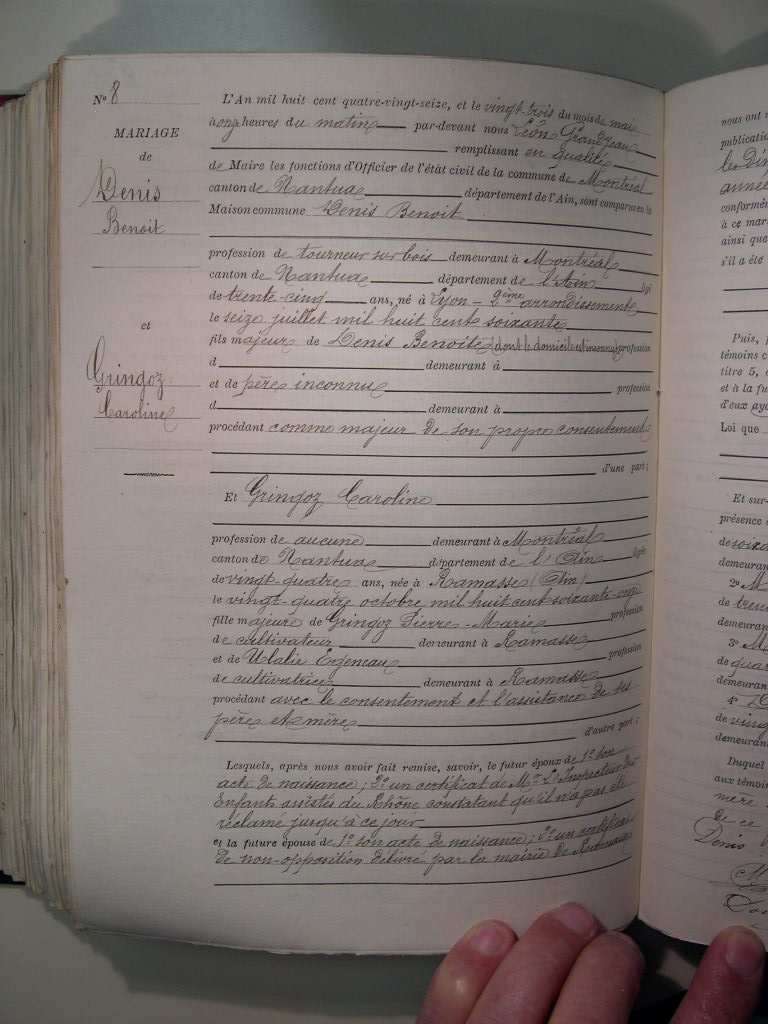 N° 8
MARIAGE
de
Denis
Benoit
et
Gringoz
Caroline
L'An mil huit cent quatre-vingt-seize, et le vingt-trois du mois de mai
à onze heures du matin par-devant nous Léon Grandjean
remplissant en qualité
de Maire les fonctions d'Officier de l'état civil de la commune de Montréal
canton de Nantua département de l'Ain, sont comparus en la
Maison commune Denis Benoit
profession de tourneur sur bois demeurant à Montréal
canton de Nantua département de l'Ain
de trente-cinq ans, né à Lyon - 2ème arrondissement
le seize juillet mil huit cent soixante
fils majeur de Denis Benoîte (dont le domicile est inconnu) profession
d demeurant à
et de père inconnu profession
d demeurant à
procédant comme majeur de son propre consentement
d'une part ;
Et Gringoz Caroline
profession de aucune demeurant à Montréal
canton de Nantua département de l'Ain
de vingt-quatre ans, née à Ramasse (Ain)
le vingt-quatre octobre mil huit cent soixante-onze
fille majeure de Gringoz Pierre-Marie profession
de cultivateur demeurant à Ramasse
et de Ulalie profession
de cultivatrice demeurant à Ramasse
procédant avec le consentement et l'assistance de ses
père et mère
d'autre part ;
Lesquels, après nous avoir fait remise, savoir, le futur époux de 1° son
acte de naissance ; 2° un certificat de Mr L'Inspecteur des
Enfants assistés du Rhône constatant qu'il n'a pas été
réclamé jusqu'à ce jour
et la future épouse de 1° son acte de naissance ; 2° un certificat
de non-opposition délivré par la mairie de Ramasse
nous ont
publication
les di
année
conformé
à ce mar
ainsi que
s'il a été
Puis,
témoins c
titre 5,
et à la fu
d'eux ay
Loi que
Et sur-
présence
de soixa
demeurant
2° M
de tren
demeurant
3° M
de quar
demeurant
4°
de ving
demeurant
Duquel
aux témoi
mère
de ce
Denis